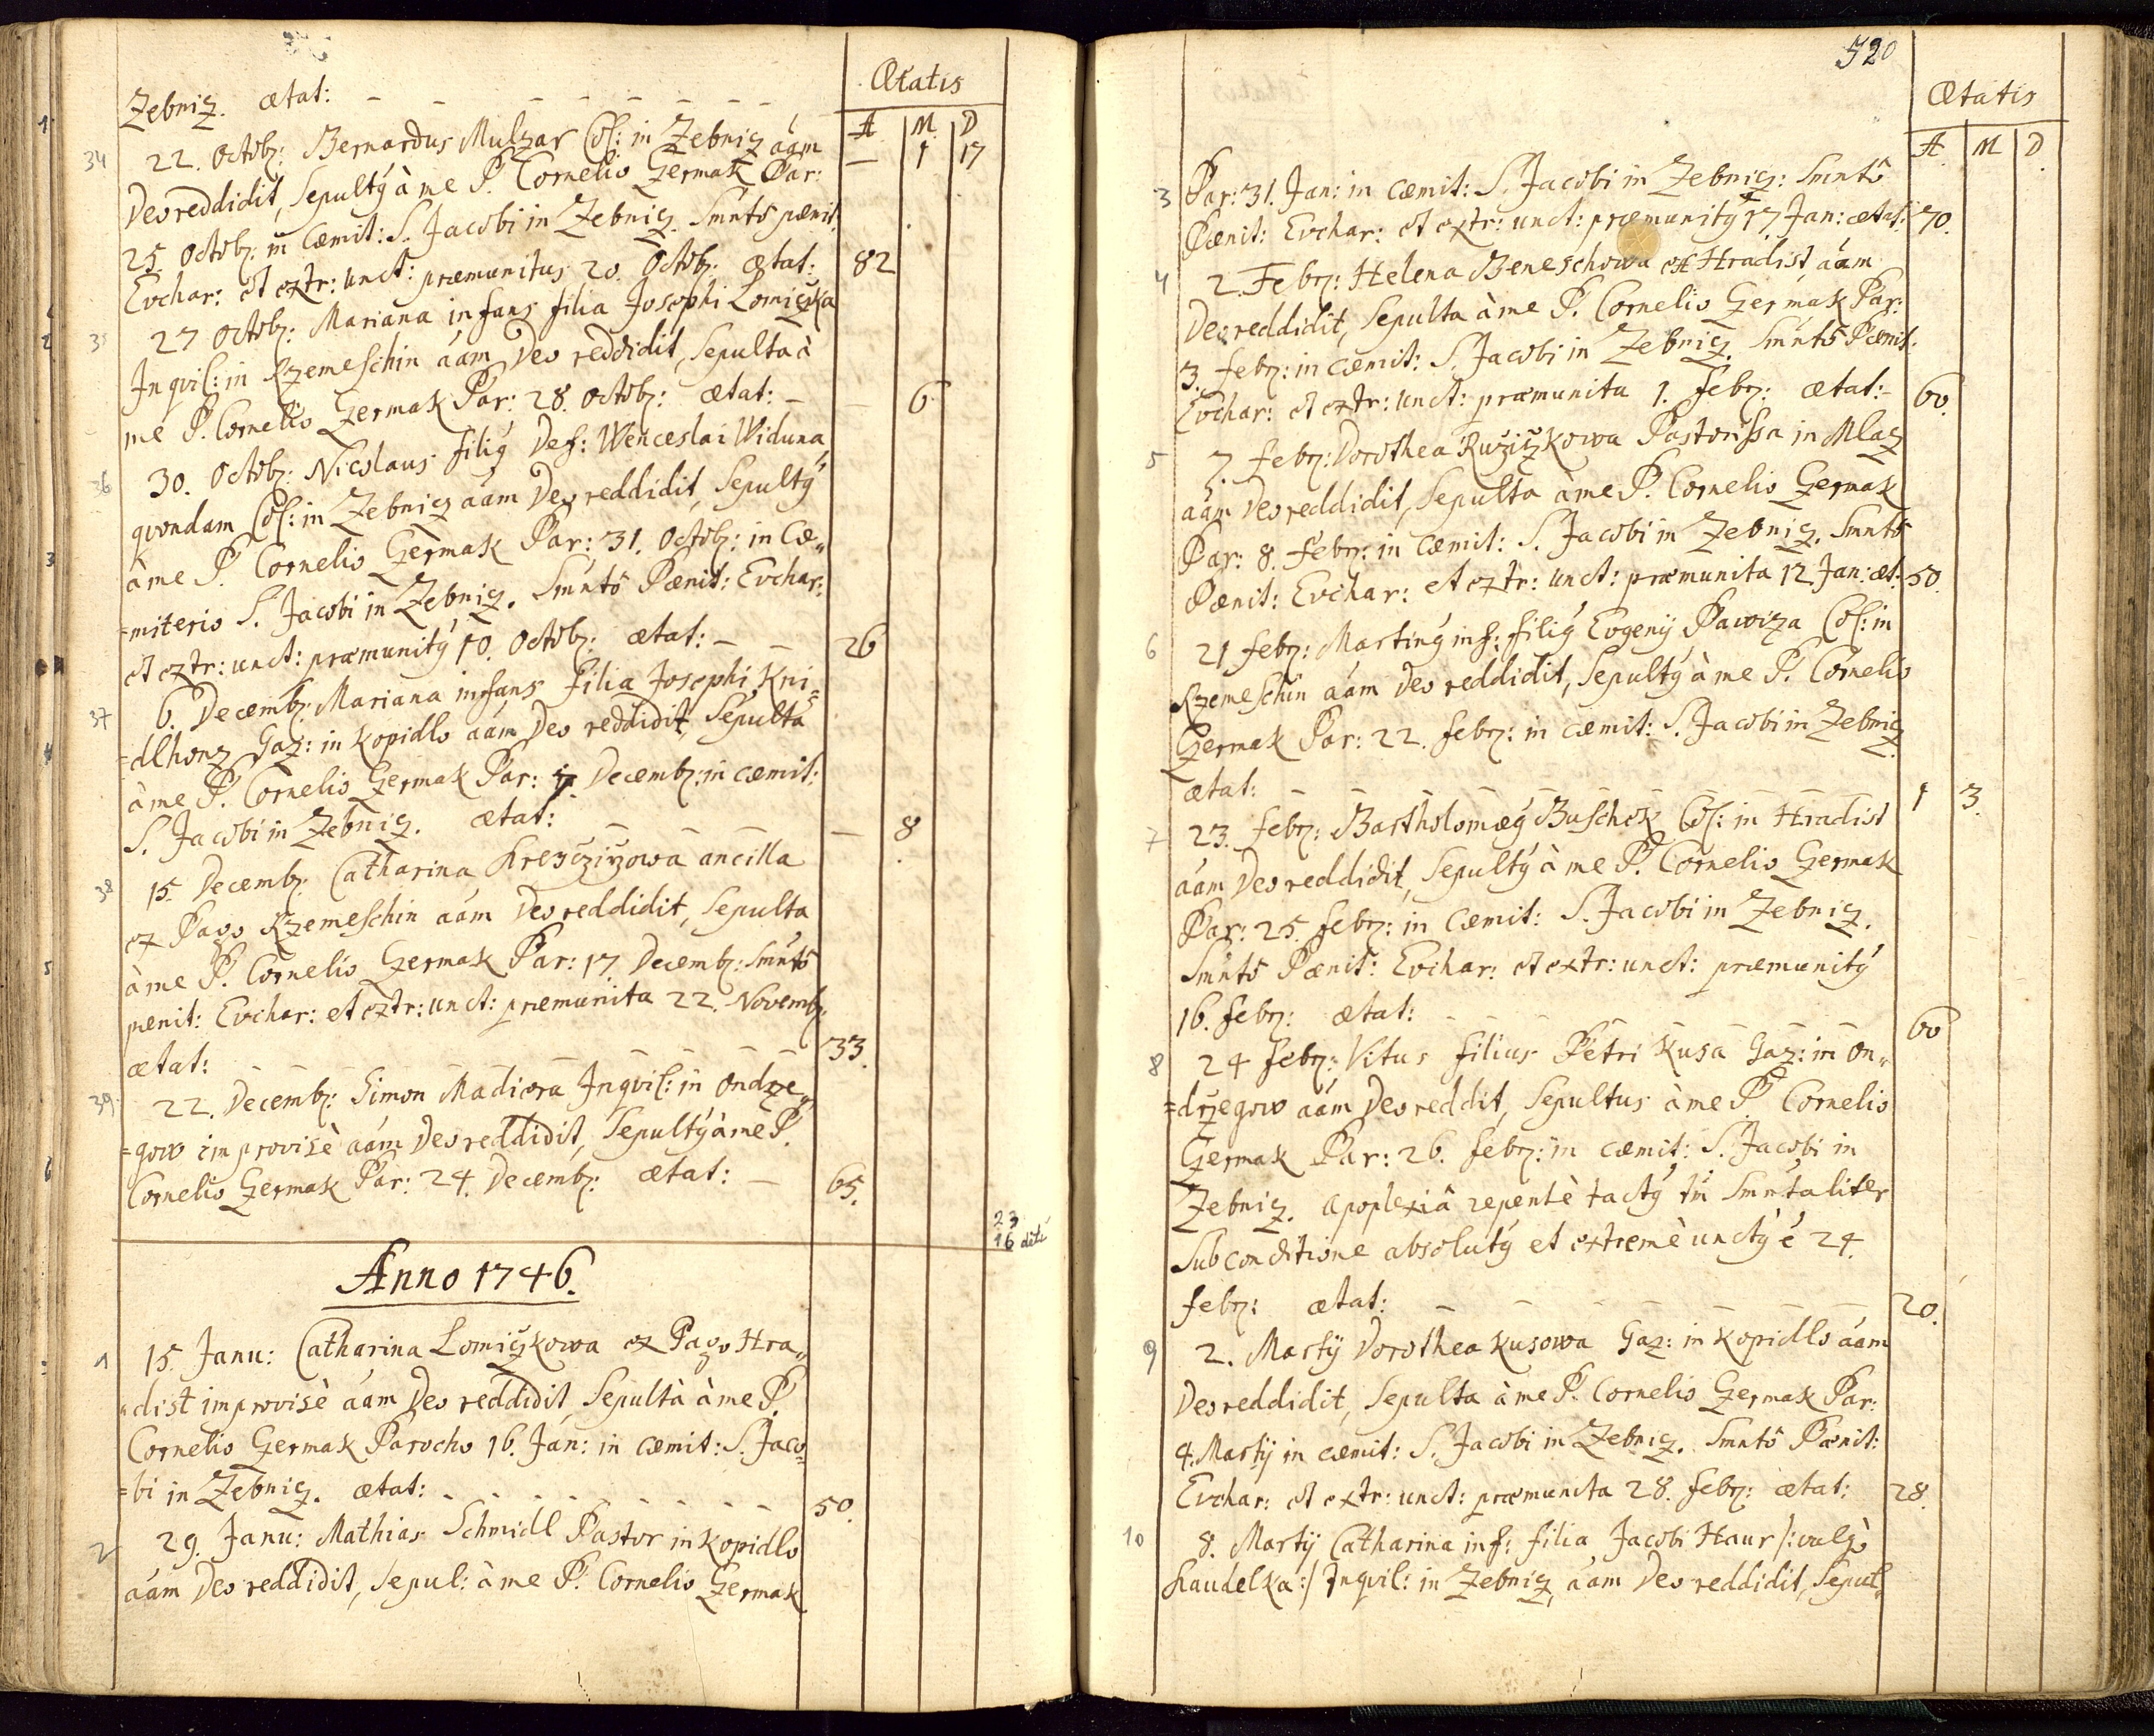 Ætatis
A M. D
Zebnicz. ætat: — — — — — — — — — 1 17
34 22. Octobr: Bernardus Mulzar Col: in Zebnicz aám
Deo reddidit, Sepultý à me P. Cornelio Czermak Par:
25. Octobr: in Cæmit: S. Jacobi in Zebnicz. Smntô pænit:
Evchar: et extr: unct: præmunitus 20. Octobr: ætat: 82
35 27 Octobr: Mariana infans filia Josephi Lomiczka
Inqvil: in Rzemeschin aám Deo reddidit, Sepulta à
me P. Cornelio Czermak Par: 28. Octobr: ætat: — — 6
36 30. Octobr: Nicolaus filiý Def: Wenceslai Widuna
qvondam Col: in Zebnicz aám Deo reddidit, Sepultý
à me P. Cornelio Czermak Par: 31. Octobr: in Cæ„
=miterio S. Jacobi in Zebnicz. Smntô Pænit: Evchar:
et extr: unct: præmunitý 10. Octobr: ætat: — — 26
37 6. Decembr: Mariana infans filia Josephi Kni=
=dlhonz Gaz: in Kopidlo aám Deo reddidit, Sepulta
à me P. Cornelio Czermak Par: Decembr: in cæmit:
S. Jacobi in Zebnicz. ætat: — — — 8
38 15. Decembr: Catharina Kreycziczowa ancilla
ex Pago Rzemeschin aám Deo reddidit, Sepulta
à me P. Cornelio Czermak Par: 17. Decembr: Smntô
pænit: Evchar: et extr: unct: præmunita 22. Novembr:
ætat: — — — — — — — — 33.
39. 22. Decembr: Simon Madiera Inqvil: in Ondrze„
=gow improvisè aám Deo reddidit, Sepultý à me P.
Cornelio Czermak Par: 24. Decembr: ætat: — 65.
23
16 dětí
Anno 1746.
1 15. Janu: Catharina Lomiczkowa ex Pago Hra„
„dist improvisè aám Deo reddidit, Sepulta à me P.
Cornelio Czermak Parocho 16. Jan: in cæmit: S. Jaco=
=bi in Zebnicz. ætat: — — — — — — — 50.
2 29. Janu: Mathias Schmidl Pastor in Kopidlo
aám Deo reddidit, Sepul: à me P. Cornelio Czermak
520
Ætatis
A M D
3 Par: 31. Jan: in cæmit: S. Jacobi in Zebnicz: Smntô
Pænit: Evchar: et extr: unct: præmunitý 17. Jan: ætat: 70.
4 2. Febr: Helena Beneschowa ex Hradist aám
Deo reddidit, Sepulta à me P. Cornelio Czermak Par:
3. febr: in cæmit: S. Jacobi in Zebnicz. Smntô Pænit:
Evchar: et extr: unct: præmunita 1. febr: ætat: — 60.
5 7. febr: Dorothea Ruziczkowa Pastorissa in Mlacz
aám Deo reddidit, Sepulta à me P. Cornelio Czermak
Par: 8. febr: in cæmit: S. Jacobi in Zebnicz. Smntô
Pænit: Evchar: et extr: unct: præmunita 12. Jan: æt: 50.
6 21. febr: Martiný inf: filiý Evgenij Pawiza Col: in
Rzemeschin aám Deo reddidit, Sepultý à me P. Cornelio
Czermak Par: 22. febr: in cæmit: S. Jacobi in Zebnicz.
ætat: — — — — — — — — 1 3.
7 23. febr: Bartholomæý Buschek Col: in Hradist
aám Deo reddidit, Sepultý à me P. Cornelio Czermak
Par: 25. febr: in cæmit: S. Jacobi in Zebnicz.
Smntô Pænit: Evchar: et extr: unct: præmunitý
16. febr: ætat: — — — — — — — 60
8 24 febr: Vitus filius Petri Kusa Gaz: in On„
=drzegow aám Deo reddit, Sepultus à me P. Cornelio
Czermak Par: 26. febr: in cæmit: S. Jacobi in
Zebnicz. Apoplexiâ repentè tactý Smntaliter
Sub conditione absolutý et extremè unctý é 24.
febr: ætat: — — — — — — 20.
9 2. Martij Dorothea Kusowa Gaz: in Kopidlo aám
Deo reddidit, Sepulta à me P. Cornelio Czermak Par:
4. Martij in cæmit: S. Jacobi in Zebnicz. Smntô Pænit:
Evchar: et extr: unct: præmunita 28. febr: ætat: 28.
10 8. Martij Catharina inf: filia Jacobi Haur /: vulgò
Haudelka :/ Inqvil: in Zebnicz, aám Deo reddidit, Sepul„